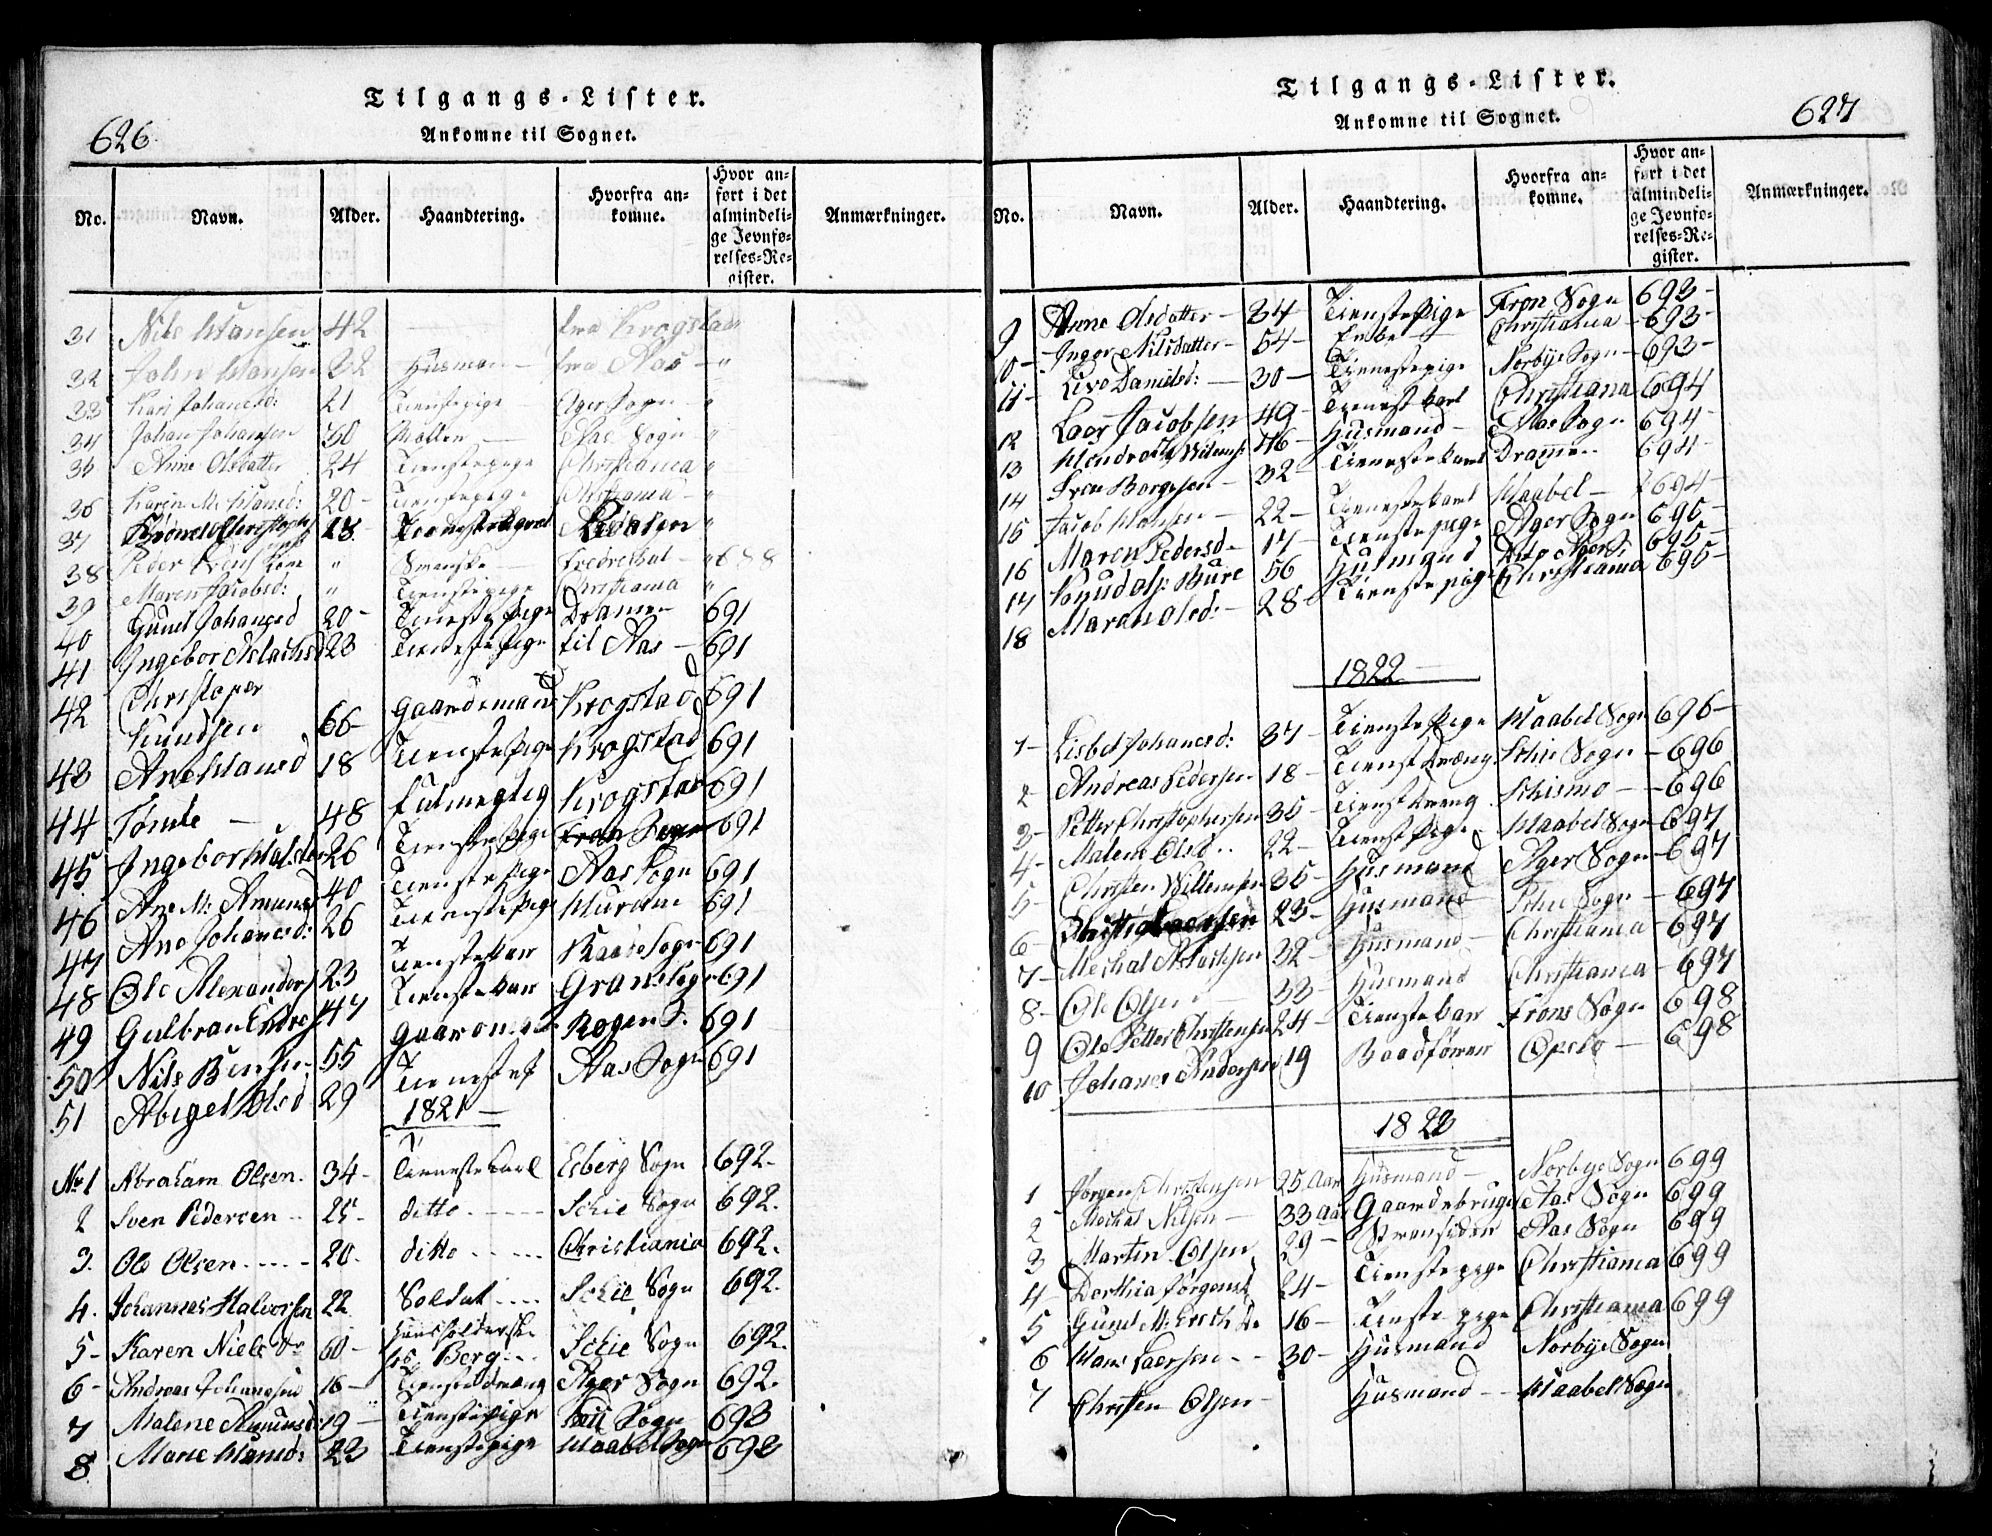 626.
Tilgangs-Lister.
Ankomne til Sognet.
No. Navn. Alder. Haandtering. Hvorfra ankomne. Hvor anført i det almindelige Jevnførelses-Register. Anmærkninger.
31 Nils Hansen 42 — fra Krogstad
32 John Hansen 32 Husman — fra Aas — "
33 Kari Johanesd: 21 Tienstepige Ager Sogn "
34 Johan Johansen 30 — Aas Sogn "
35 Anne Olsdatter 24 Tienestepige Christiania "
36 Karen M. Hansd: 20 — Tienstepige Christiania "
37 18
38 Peder " Svenske — Fredrekhal — " 688
39 Maren Jacobsd: " Tienstepige Christiania "
40 Gunel Johanesd 20 — Tienstepige Dramen 691
41 Ingebor Aslachsd 23 Tienstepige til Aas — 691
42 Christoper
Knudsen 66 — gaardemand Krogstad 691
43 Ane Hansd 18 Tienstepige Krogstad 691
44 Tømte — 48 fulmegtig Krogstad 691
45 Ingebor 26 Tienstepige 691
46 Ane M: Amunds 40 Tienstepige Aas Sogn 691
47 Ane Johanesd: 26 Tienstepige Hurdale 691
48 Ole Alexanders 23 Tienstekar Sogn 691
49 Gulbran 47 Tienstekar Gran Sogn 691
50 Nils 55 691
51 Abigel Olsd 29 Tienest Aas Sogn 691
1821 —
No 1 Abraham Olsen. 34 — Tienestekarl Esberg Sogn 692.
2 Sven Pedersen — 25 — ditto — Schie Sogn 692.
3. Ole Olsen — 20. ditto — Christiania 692.
4. Johannes Halvorsen 22 Soldat — Schie Sogn 692.
5 — Karen Niels Dr 60 — Huusholderske
Berg — Schie Sogn 692.
6 — Andreas Johannesen 16 — Tienstedreng Ager Sogn 692.
7 Malene Amunsd: 19 — Tienstepige Sogn 693
8 Marie Hansd: 23 Tienstepige Haabel Sogn 693
627
Tilgangs-Lister.
Ankomne til Sognet.
No. Navn. Alder. Haandtering. Hvorfra ankomne. Hvor anført i det almindelige Jevnførelses-Register. Anmærkninger.
9 Anne Olsdatter — 34 Tienstepige Fron Sogn 693 —
10 — Inger Nilsdatter — 54 — Enke — Christiania — 693 —
11 — Lise Danielsd: — 30 — Tienestepige Norbye Sogn — 693 —
12 Laers Jacobsen 49 — Tienestkarl Christiania 694
13 46 — Husmand — Aas Sogn 694 —
14 Sven Borgesen — 32 Tienestekarl Drammen 694 —
15 Jacob Hansen — 22 — Tienstekarl Haabel — 694 —
16 Maren Pedersd — 17 — Tienstepige Ager Sogn 695 —
17 Knud Ols: Bure 56 Husmand Ager S: 695 —
18 Maren Olsd: — 28 — Tienstepige Christiania 695 —
1822 —
1 — Lisbet Johanesd: 37 — Tienstepige Haabel Sogn 696 —
2 Andreas Pedersen 18 — Tienstdræng Schie Sogn — 696
3 — Petter Christophersen 35 — Tienstdreng Schismo — 696
4 — Malene Olsd: 22 — Tienstepige Haabel Sogn 697
5 — Christen Willemsen 35 — Husmand Ager Sogn — 697
6 — 23 — Husmand Schie Sogn — 697
7 — Mechal Aslachsen 32 — Husmand — Christiania — 697
8 — Ole Olsen — 33 — Husmand Christiania — 697
9 Ole Petter Christensen 24 — Tienstekar Frons Sogn 698
10 Johanes Andersen 19 Baadfører Opslo — 698
1823
1 Jørgen Christensen 25 Aar Husmand — Norbye Sogn 699
2 Mechal Nilsen — 33 Aar Gaardebruger Aas Sogn 699
3 Martin Olsen 29 — Strensider Aas Sogn 699
4 — Dorthia Jørgensd 24 — Tienstepige Christiania 699
5 Gunil M. 16 — Tienstepige Christiania 699
6 Hans Laersen — 30 — Husmand Norbye Sogn
7 Christen Olsen — Husmand — Haabel Sogn